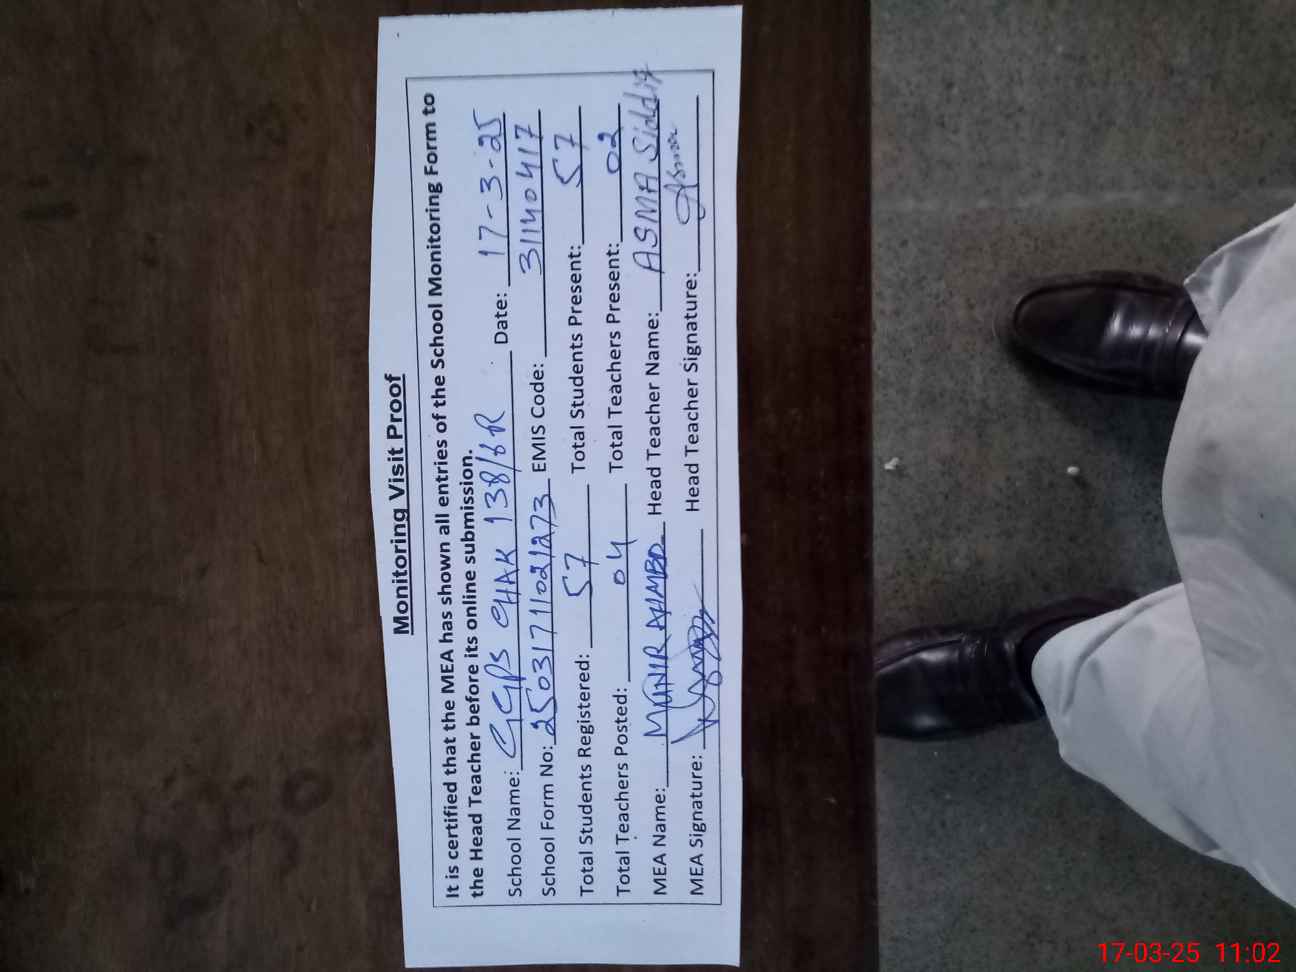 Monitoring Visit Proof
It is certified that the MEA has shown all entries of the School Monitoring Form to
the Head Teacher before its online submission.
School Name: GGPS CHAK 138/6R Date: 17-3-25
School Form No: 25031711021273 EMIS Code: 31140417
Total Students Registered: 57 Total Students Present: 57
Total Teachers Posted: 04 Total Teachers Present: 02
MEA Name: MUNIR AHMED Head Teacher Name: ASMA Siddiq
MEA Signature: Head Teacher Signature: Asma
17-03-25 11:02